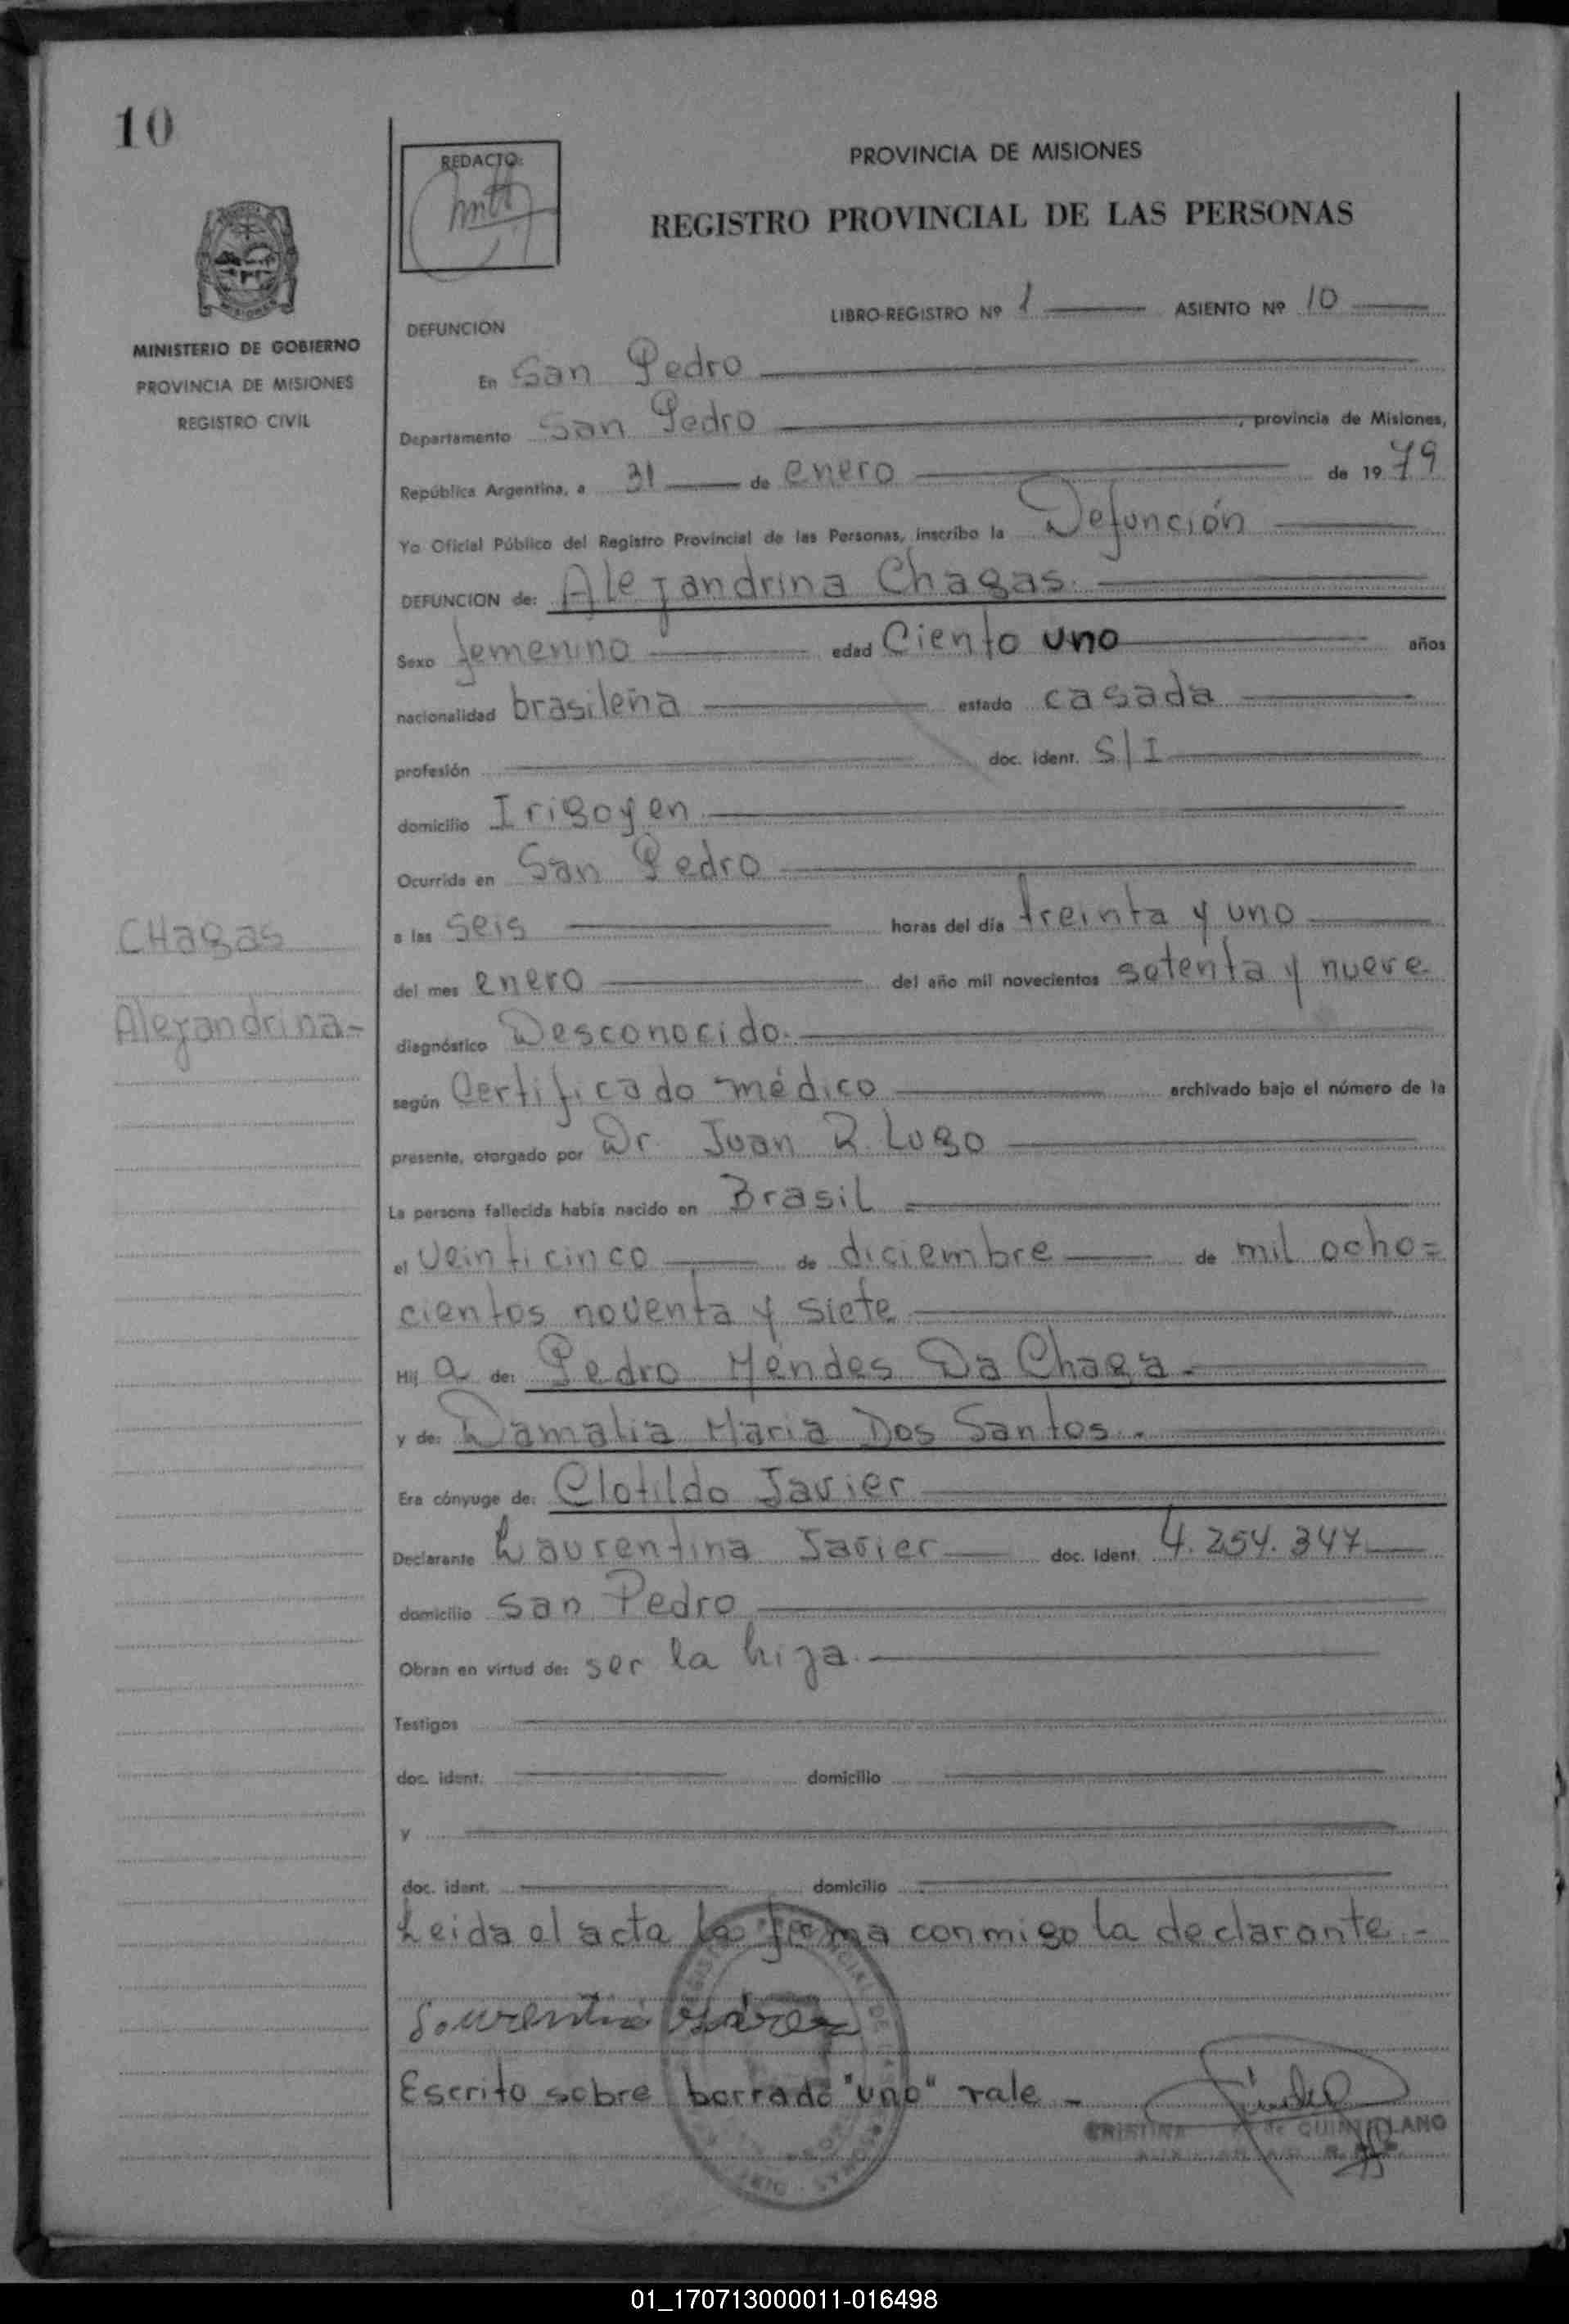 10
REDACTO:
PROVINCIA DE MISIONES
REGISTRO PROVINCIAL DE LAS PERSONAS
MINISTERIO DE GOBIERNO
PROVINCIA DE MISIONES
REGISTRO CIVIL
LIBRO-REGISTRO Nº 1 ASIENTO Nº 10
DEFUNCION
En San Pedro
Departamento San Pedro, provincia de Misiones,
República Argentina, a 31 de enero de 1979
Yo Oficial Público del Registro Provincial de las Personas, inscribo la Defunción
DEFUNCION de: Alejandrina Chagas.
Sexo femenino edad Ciento uno años
nacionalidad brasileña estado casada
profesión doc. ident. S/I
domicilio Irigoyen
Ocurrida en San Pedro
CHagas
Alejandrina-
a las seis horas del día treinta y uno
del mes enero del año mil novecientos setenta y nueve
diagnóstico Desconocido.
según Certificado médico archivado bajo el número de la
presente, otorgado por Dr. Juan R. Lugo
La persona fallecida había nacido en Brasil
el veinticinco de diciembre de mil ocho=
cientos noventa y siete
Hij a de: Pedro Méndes Da Chaga.
y de: Damalia Maria Dos Santos.
Era cónyuge de: Clotildo Javier
Declarante Laurentina Javier doc. ident. 4.254.347
domicilio San Pedro
Obran en virtud de: ser la hija.
Testigos
doc. ident. domicilio
y
doc. ident. domicilio
Leida el acta la firma conmigo la declarante.-
Escrito sobre borrado "uno" vale-
CRISTINA de
01_170713000011-016498